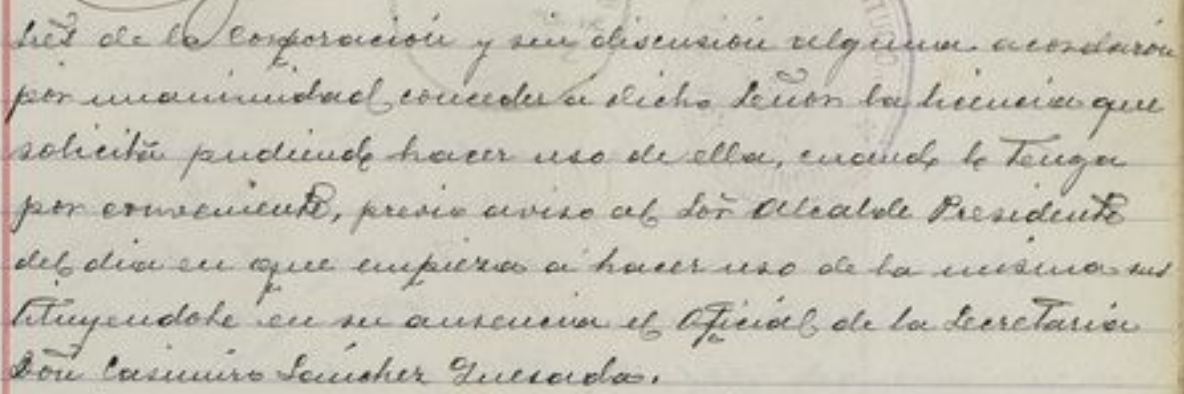 Sres de la Corporación y sin discusión alguna acordarón
por unanimidad conceder a dicho Señor la licencia que
solicita pudiendo hacer uso de ella, cuando lo Tenga
por conveniente, previo aviso al Sor Alcalde Presidente
del dia en que empieza a hacer uso de la misma sus
tituyendole en su ausencia el Oficial de la Secretaria
Don Casimiro Sánchez Quesada.